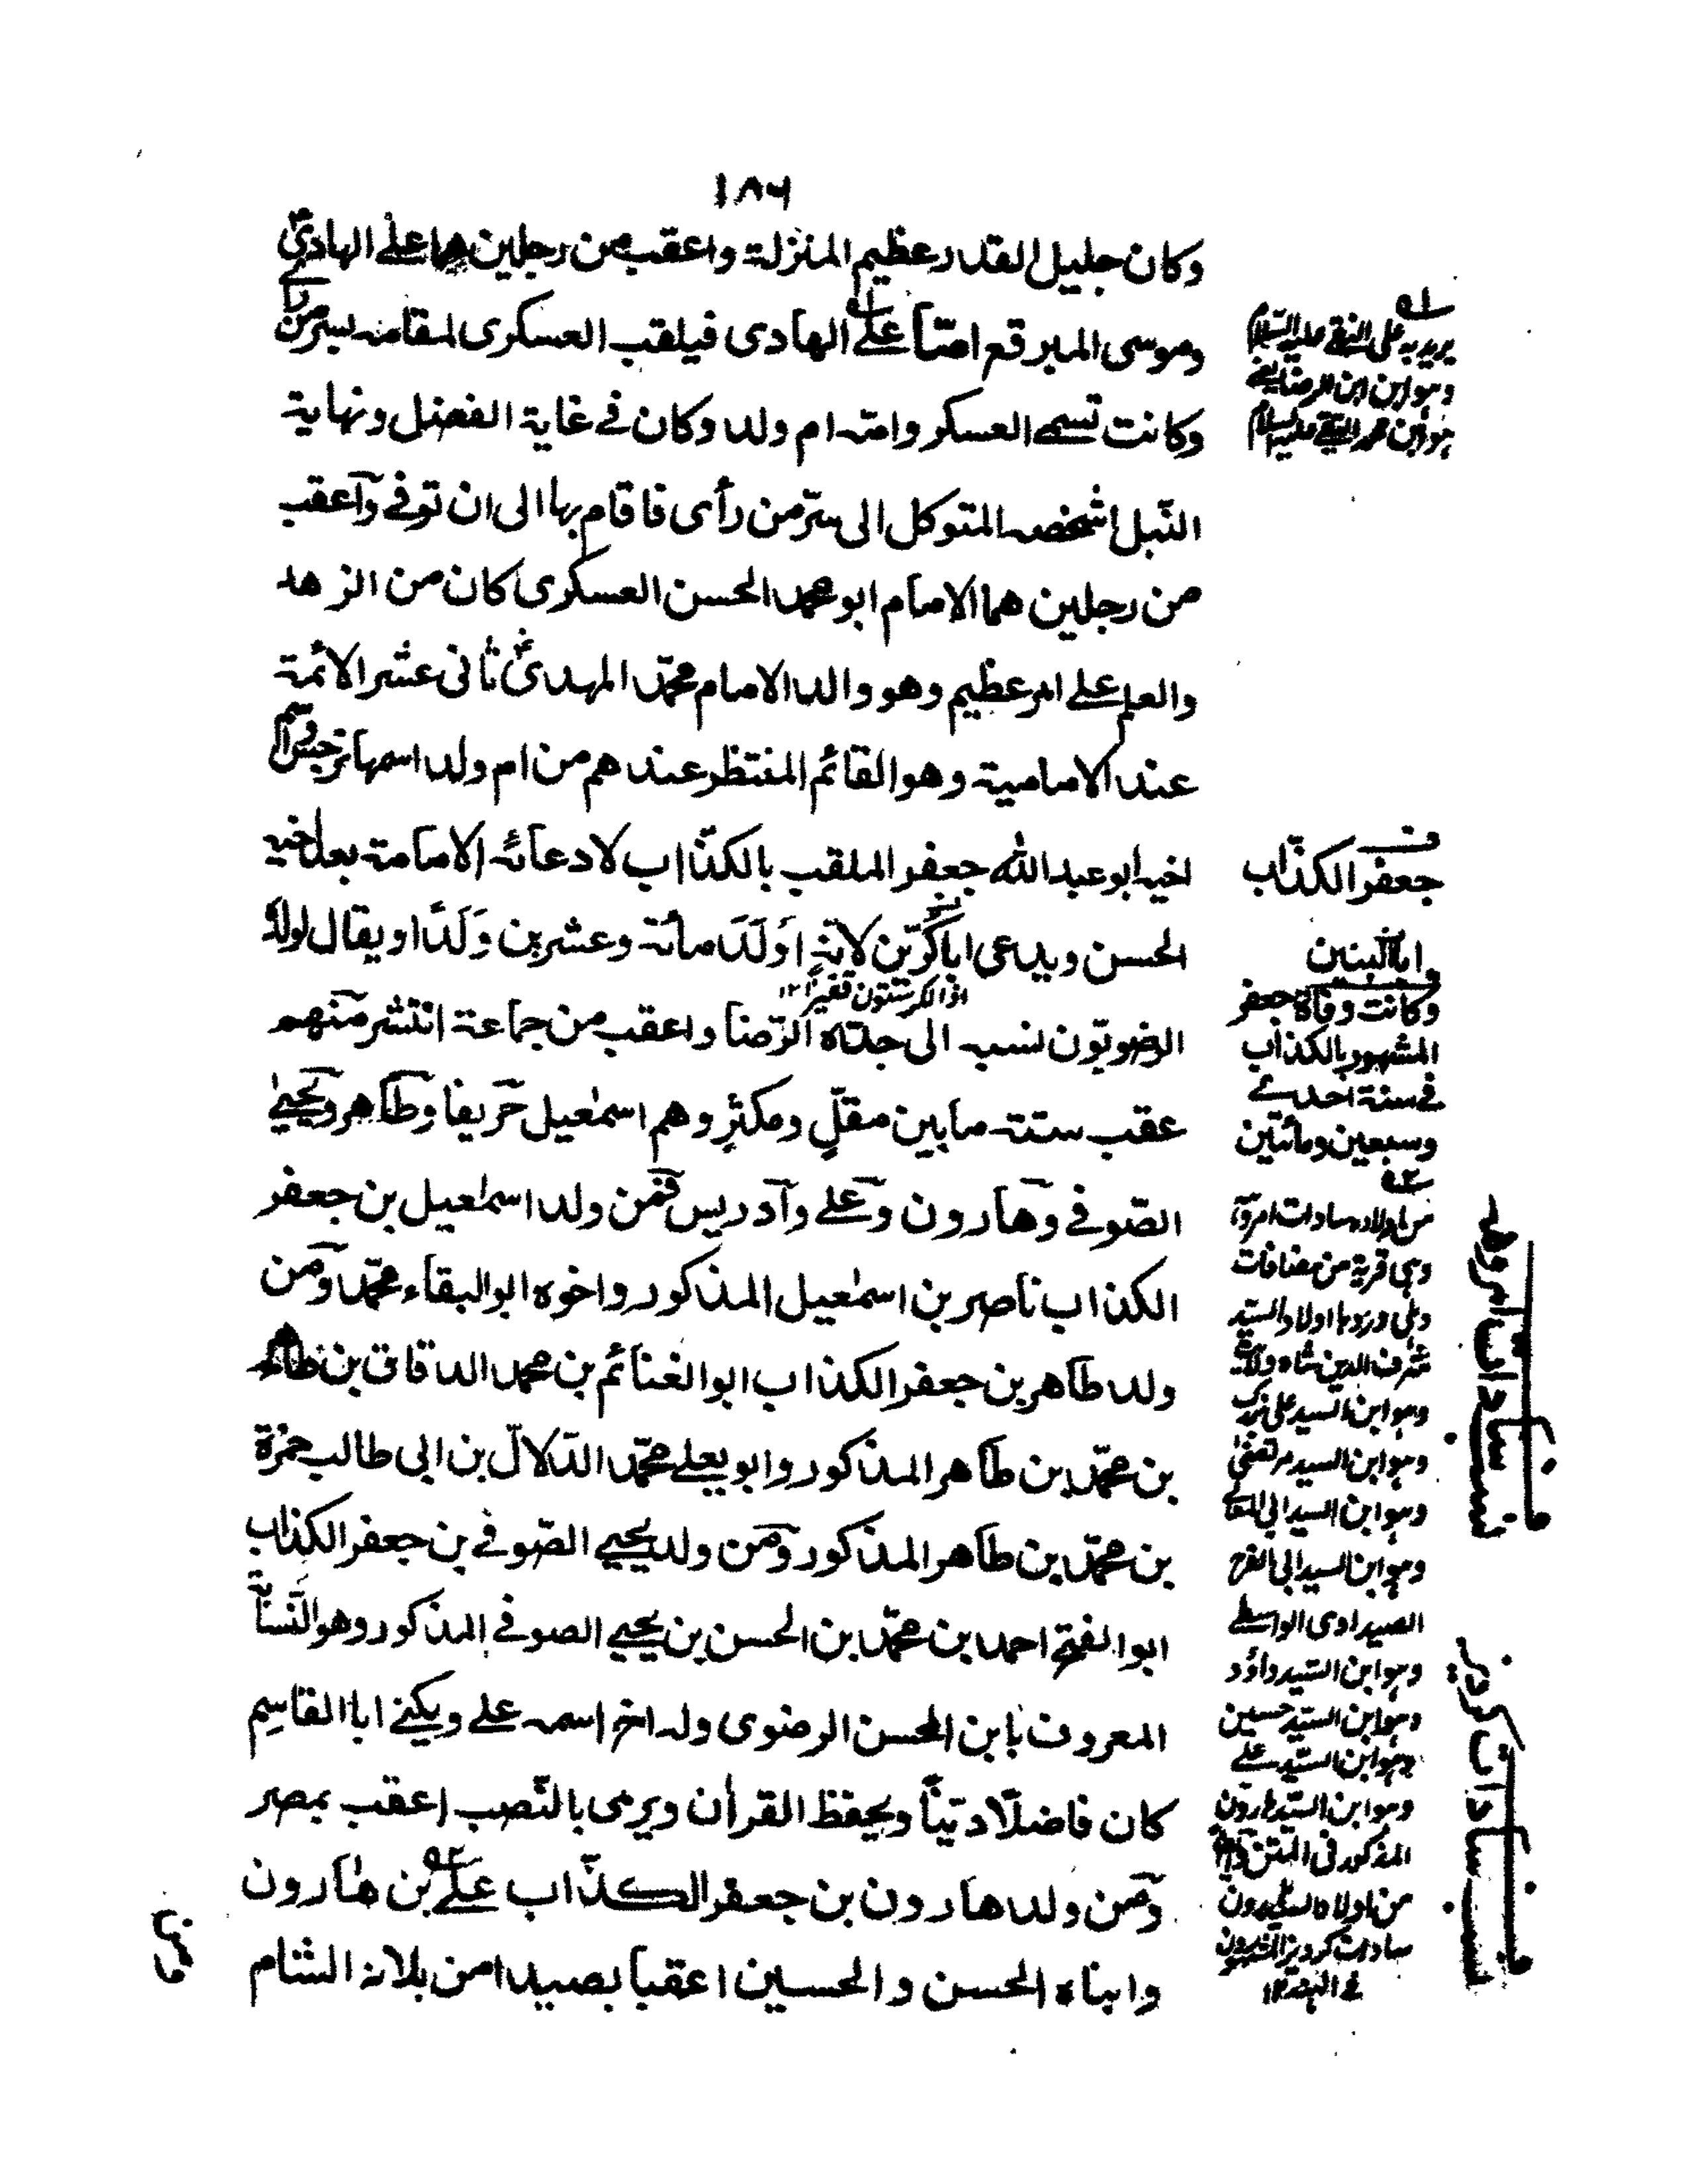 ١٨٦
وكان جليل القدر عظيم المنزلة واعقب من رجلين هما علي الهادي
وموسى المبرقع امّا علي الهادي فيلقب العسكرى لمقامه بسرّ من رأى
وكانت تسمى العسكر وامّه ام ولد وكان في غاية الفضل ونهاية
النّبل اشخصه المتوكل الى سرّ من رأى فاقام بها الى ان توفي وآعقب
من رجلين هما الامام ابو محمد الحسن العسكرى كان من الزهد
والعلم على امر عظيم وهو والد الامام محمّد المهدى ثانى عشر الائمّة
عند الامامية وهو القائم المنتظر عندهم من ام ولد اسمها نرجس واسم
اخيه ابو عبد الله جعفر الملقب بالكذّاب لادعائه الامامة بعد اخيه
الحسن ويدعى ابا كرّين لانه اَولَدَ مائة وعشرين وَلَدًا ويقال لولده
اذ الكر ستون قفيزًا ١٢
الرضويّون نسبه الى جدّه الرّضا واعقب من جماعة انتشر منهم
عقب ستة ما بين مقلٍّ ومكثرٍ وهم اسمٰعيل حريفا وطاهر ويحيىٰ
الصّوفي وهارون وعلي وآدريس فمن ولد اسمٰعيل بن جعفر
الكذاب ناصر بن اسمٰعيل المذكور واخوه ابو البقاء محمّد ومن
ولد طاهر بن جعفر الكذاب ابو الغنائم بن محمد الدقاق بن طاهر
بن محمّد بن طاهر المذكور وابو يعلي محمّد الدّلالّ بن ابى طالب حمزة
بن محمّد بن طاهر المذكور ومن ولد يحيي الصّوفي بن جعفر الكذاب
ابو الفتح احمد بن محمّد بن الحسن بن يحيي الصوفي المذكور وهو النّسابة
المعروف بابن المحسن الرضوى وله اخ اسمه علي ويكنى ابا القاسم
كان فاضلًا ديّنًا ويحفظ القرأن ويرمى بالنّصب اعقب بمصر
ومن ولد هارون بن جعفر الكذّاب علي بن هارون
وابناه الحسن والحسين اعقبا بصيدا من بلاد الشام
ومن
يريد به على النقي عليه السلام
وهو ابن ابن الرضا يعني
هو ابن محمد التقي عليه السلام
جعفر الكذّاب
وابا البنين
وكانت وفاة جعفر
المشهور بالكذاب
في سنة احدى
وسبعين ومائتين
من اولاده سادات امروهه
وهى قرية من مضافات
دهلى ورودها اولاد السيد
شرف الدين شاه ولايت
وهو ابن السيد على بزرك
وهو ابن السيد مرتضىٰ
وهو ابن السيد ابى المعالي
وهو ابن السيد ابى الفرح
الصيداوى الواسطي
وهو ابن السّيد داؤد
وهو ابن السّيد حسين
وهو ابن السّيد علي
وهو ابن السّيد هارون
المذكور فى المتن
من اولاده
سادات كرديز المشهورون
في الهند ١٢
نسب سادات امروهه
نسب سادات كرديز